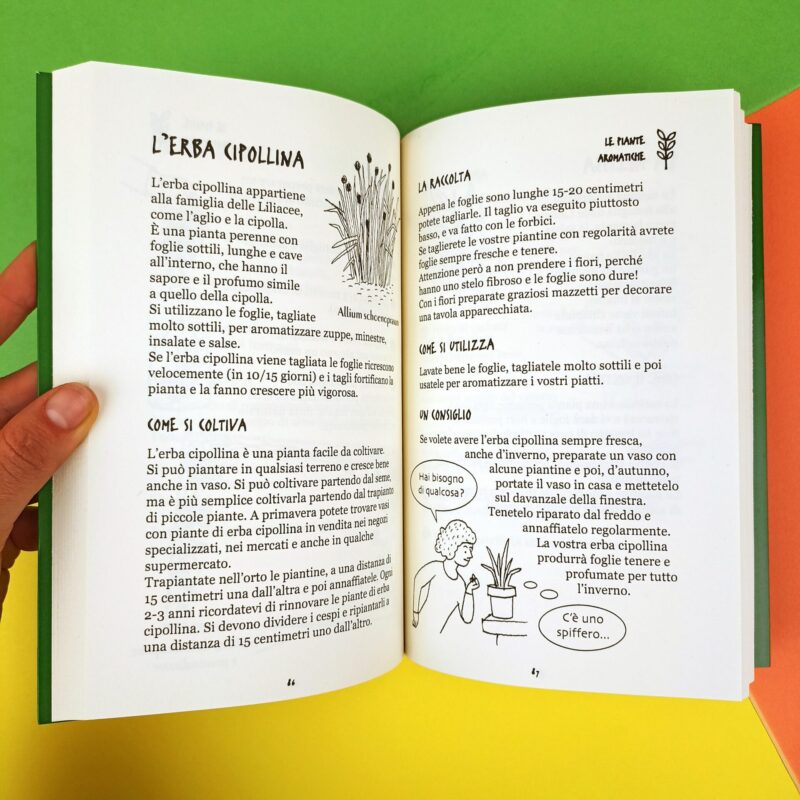 L'ERBA CIPOLLINA
L'erba cipollina appartiene
alla famiglia delle Liliacee,
come l'aglio e la cipolla.
È una pianta perenne con
foglie sottili, lunghe e cave
all'interno, che hanno il
sapore e il profumo simile
a quello della cipolla.
Si utilizzano le foglie, tagliate
molto sottili, per aromatizzare zuppe, minestre,
insalate e salse.
Se l'erba cipollina viene tagliata le foglie ricrescono
velocemente (in 10/15 giorni) e i tagli fortificano la
pianta e la fanno crescere più vigorosa.
Allium schoenoprasum
COME SI COLTIVA
L'erba cipollina è una pianta facile da coltivare.
Si può piantare in qualsiasi terreno e cresce bene
anche in vaso. Si può coltivare partendo dal seme,
ma è più semplice coltivarla partendo dal trapianto
di piccole piante. A primavera potete trovare vasi
con piante di erba cipollina in vendita nei negozi
specializzati, nei mercati e anche in qualche
supermercato.
Trapiantate nell'orto le piantine, a una distanza di
15 centimetri una dall'altra e poi annaffiatele. Ogni
2-3 anni ricordatevi di rinnovare le piante di erba
cipollina. Si devono dividere i cespi e ripiantarli a
una distanza di 15 centimetri uno dall'altro.
86
LE PIANTE
AROMATICHE
LA RACCOLTA
Appena le foglie sono lunghe 15-20 centimetri
potete tagliarle. Il taglio va eseguito piuttosto
basso, e va fatto con le forbici.
Se taglierete le vostre piantine con regolarità avrete
foglie sempre fresche e tenere.
Attenzione però a non prendere i fiori, perché
hanno uno stelo fibroso e le foglie sono dure!
Con i fiori preparate graziosi mazzetti per decorare
una tavola apparecchiata.
COME SI UTILIZZA
Lavate bene le foglie, tagliatele molto sottili e poi
usatele per aromatizzare i vostri piatti.
UN CONSIGLIO
Se volete avere l'erba cipollina sempre fresca,
anche d'inverno, preparate un vaso con
alcune piantine e poi, d'autunno,
portate il vaso in casa e mettetelo
sul davanzale della finestra.
Tenetelo riparato dal freddo e
annaffiatelo regolarmente.
La vostra erba cipollina
produrrà foglie tenere e
profumate per tutto
l'inverno.
Hai bisogno
di qualcosa?
C'è uno
spiffero...
87